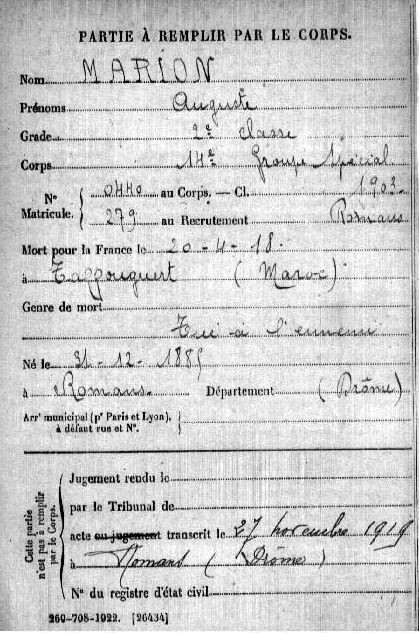 PARTIE À REMPLIR PAR LE CORPS.
Nom MARION
Prénoms Auguste
Grade 2e classe
Corps 14e Groupe Spécial
N° Matricule. { 0440 au Corps. — Cl. 1903.
279 au Recrutement Romans
Mort pour la France le 20-4-18.
à (Maroc)
Genre de mort
Tué à l'ennemi
Né le 31-12-1885
à Romans. Département (Drôme)
Arrt municipal (pr Paris et Lyon), à défaut rue et N°.
Cette partie n'est pas à remplir par le Corps.
Jugement rendu le
par le Tribunal de
acte ou jugement transcrit le 27 novembre 1919
à Romans (Drôme)
N° du registre d'état civil
269-708-1922. [26434]